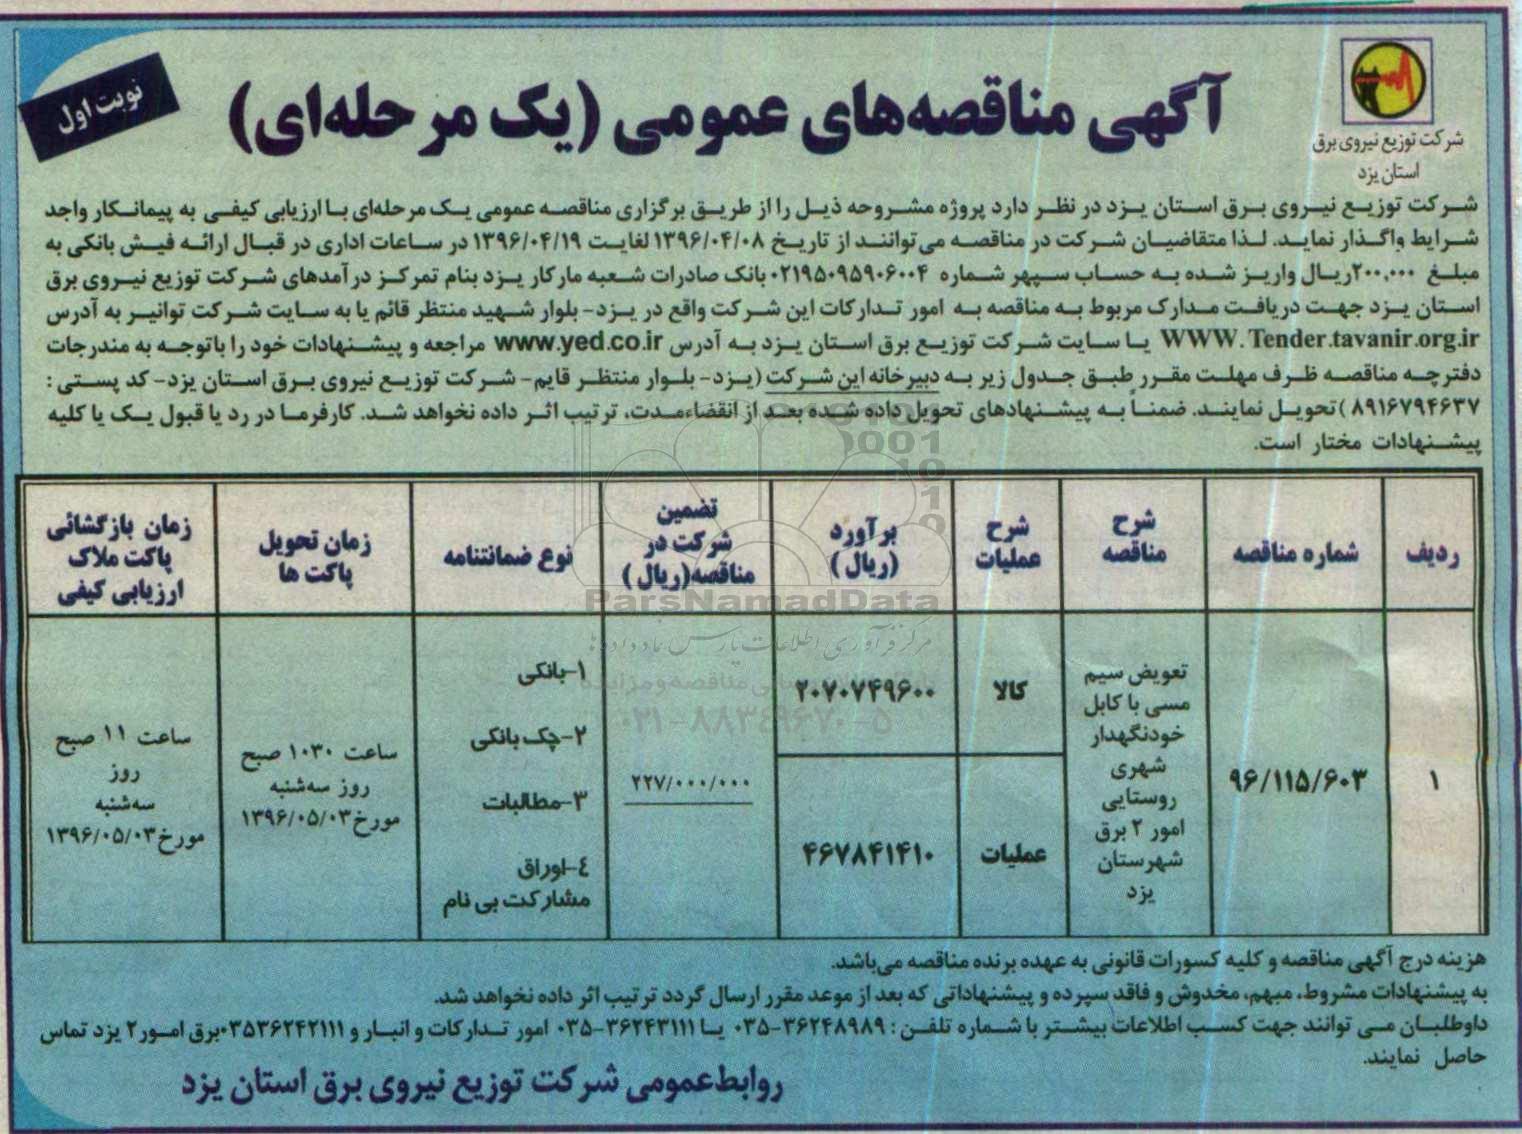 نوبت اول
آگهی مناقصه‌های عمومی (یک مرحله‌ای)
شرکت توزیع نیروی برق
استان یزد
شرکت توزیع نیروی برق استان یزد در نظر دارد پروژه مشروحه ذیل را از طریق برگزاری مناقصه عمومی یک مرحله‌ای با ارزیابی کیفی به پیمانکار واجد
شرایط واگذار نماید. لذا متقاضیان شرکت در مناقصه می‌توانند از تاریخ ۱۳۹۶/۰۴/۰۸ لغایت ۱۳۹۶/۰۴/۱۹ در ساعات اداری در قبال ارائه فیش بانکی به
مبلغ ۲۰۰,۰۰۰ریال واریز شده به حساب سپهر شماره ۰۲۱۹۵۰۹۵۹۰۶۰۰۴ بانک صادرات شعبه مارکار یزد بنام تمرکز درآمدهای شرکت توزیع نیروی برق
استان یزد جهت دریافت مدارک مربوط به مناقصه به امور تدارکات این شرکت واقع در یزد- بلوار شهید منتظر قائم یا به سایت شرکت توانیر به آدرس
WWW.Tender.tavanir.org.ir یا سایت شرکت توزیع برق استان یزد به آدرس www.yed.co.ir مراجعه و پیشنهادات خود را باتوجه به مندرجات
دفترچه مناقصه ظرف مهلت مقرر طبق جدول زیر به دبیرخانه این شرکت (یزد- بلوار منتظر قایم- شرکت توزیع نیروی برق استان یزد- کد پستی :
۸۹۱۶۷۹۴۶۳۷ )تحویل نمایند. ضمناً به پیشنهادهای تحویل داده شده بعد از انقضاءمدت، ترتیب اثر داده نخواهد شد. کارفرما در رد یا قبول یک یا کلیه
پیشنهادات مختار است.
ردیف
شماره مناقصه
شرح
مناقصه
شرح
عملیات
برآورد
(ریال)
تضمین
شرکت در
مناقصه(ریال)
نوع ضمانتنامه
زمان تحویل
پاکت ها
زمان بازگشائی
پاکت ملاک
ارزیابی کیفی
۱
۹۶/۱۱۵/۶۰۳
تعویض سیم
مسی با کابل
خودنگهدار
شهری
روستایی
امور ۲ برق
شهرستان
یزد
کالا
۲۰۷۰۷۴۹۶۰۰
عملیات
۴۶۷۸۴۱۴۱۰
۲۲۷/۰۰۰/۰۰۰
۱-بانکی
۲-چک بانکی
۳-مطالبات
٤-اوراق
مشارکت بی نام
ساعت ۱۰۳۰ صبح
روز سه‌شنبه
مورخ۱۳۹۶/۰۵/۰۳
ساعت ۱۱ صبح
روز
سه‌شنبه
مورخ۱۳۹۶/۰۵/۰۳
ParsNamadData
مرکز فرآوری اطلاعات پارس نماد داده‌ها
۰۲۱-۸۸۳٤۹۶۷۰-۵
هزینه درج آگهی مناقصه و کلیه کسورات قانونی به عهده برنده مناقصه می‌باشد.
به پیشنهادات مشروط، مبهم، مخدوش و فاقد سپرده و پیشنهاداتی که بعد از موعد مقرر ارسال گردد ترتیب اثر داده نخواهد شد.
داوطلبان می توانند جهت کسب اطلاعات بیشتر با شماره تلفن : ۳۶۲۴۸۹۸۹-۰۳۵ یا ۳۶۲۴۳۱۱۱-۰۳۵ امور تدارکات و انبار و ۰۳۵۳۶۲۴۲۱۱۱برق امور۲ یزد تماس
حاصل نمایند.
روابط‌عمومی شرکت توزیع نیروی برق استان یزد